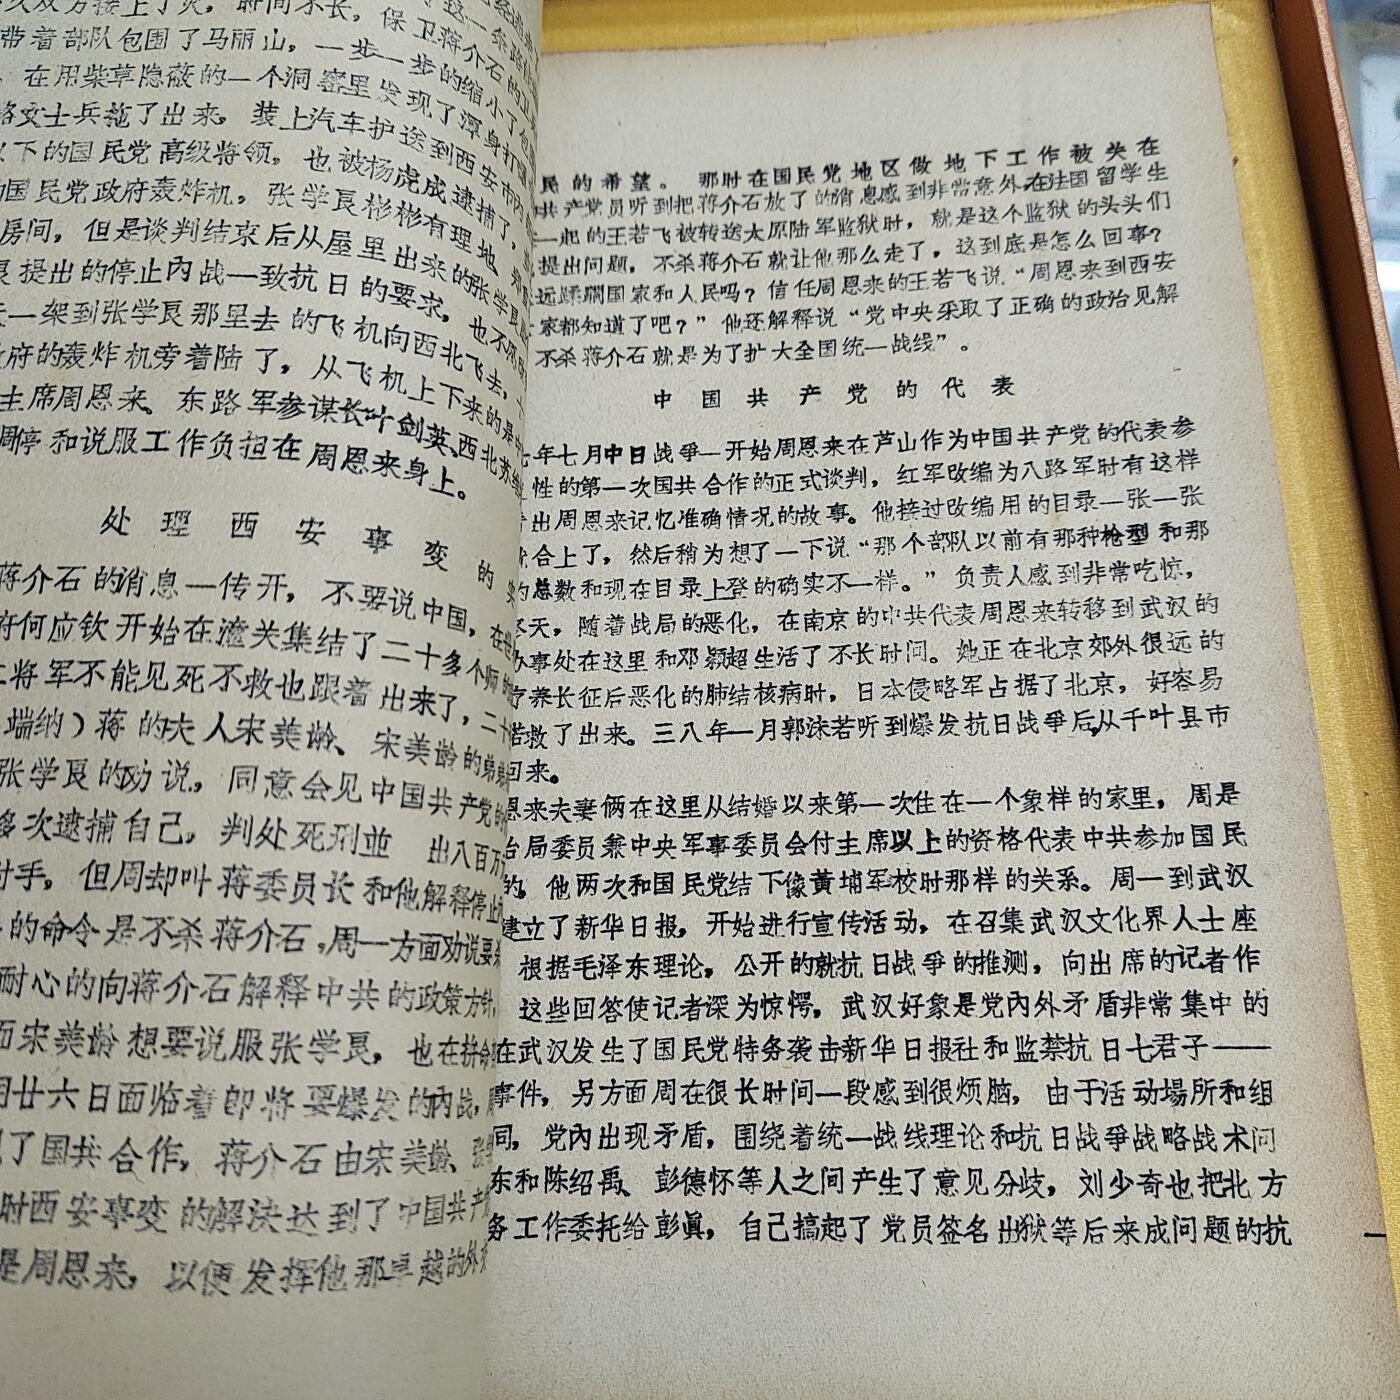 次双方接上了火，时间不长，保卫蒋介石的卫
带着部队包围了马丽山，一步一步的缩小了包围
在用柴草隐蔽的一个洞窑里发现了浑身打
略女士兵拖了出来，装上汽车护送到西安市内
以下的国民党高级将领，也被杨虎成逮捕了，
的国民党政府轰炸机，张学良彬彬有理地
房间，但是谈判结束后从屋里出来的张学良
良提出的停止内战一致抗日的要求，也不
一架到张学良那里去的飞机向西北飞去，
政府的轰炸机旁着陆了，从飞机上下来的是
主席周恩来、东路军参谋长叶剑英、西北苏
调停和说服工作负担在周恩来身上。
处理西安事变的
蒋介石的消息一传开，不要说中国，在
府何应钦开始在潼关集结了二十多个师
将军不能见死不救也跟着出来了，二十
端纳）蒋的夫人宋美龄、宋美龄的弟弟
张学良的劝说，同意会见中国共产党的
多次逮捕自己，判处死刑並 出八百万
对手，但周却叫蒋委员长和他解释停止
的命令是不杀蒋介石，周一方面劝说要杀
耐心的向蒋介石解释中共的政策方针，
而宋美龄想要说服张学良，也在拼命
周廿六日面临着即将要爆发的内战，
了国共合作，蒋介石由宋美龄、张学
时西安事变的解决达到了中国共产
是周恩来，以便发挥他那卓越的外
民的希望。那时在国民党地区做地下工作被关在
共产党员听到把蒋介石放了的消息感到非常意外，在法国留学生
一起的王若飞被转送太原陆军监狱时，就是这个监狱的头头们
提出问题，不杀蒋介石就让他那么走了，这到底是怎么回事？
远蹂躏国家和人民吗？信任周恩来的王若飞说“周恩来到西安
家都知道了吧？”他还解释说“党中央采取了正确的政治见解
不杀蒋介石就是为了扩大全国统一战线”。
中国共产党的代表
七年七月中日战争一开始周恩来在芦山作为中国共产党的代表参
性的第一次国共合作的正式谈判，红军改编为八路军时有这样
出周恩来记忆准确情况的故事。他接过改编用的目录一张一张
合上了，然后稍为想了一下说“那个部队以前有那种枪型和那
的总数和现在目录上登的确实不一样。”负责人感到非常吃惊，
冬天，随着战局的恶化，在南京的中共代表周恩来转移到武汉的
办事处在这里和邓颖超生活了不长时间。她正在北京郊外很远的
疗养长征后恶化的肺结核病时，日本侵略军占据了北京，好容易
救了出来。三八年一月郭沫若听到爆发抗日战争后，从千叶县市
回来。
恩来夫妻俩在这里从结婚以来第一次住在一个象样的家里，周是
治局委员兼中央军事委员会付主席以上的资格代表中共参加国民
的，他两次和国民党结下像黄埔军校时那样的关系。周一到武汉
建立了新华日报，开始进行宣传活动，在召集武汉文化界人士座
根据毛泽东理论，公开的就抗日战争的推测，向出席的记者作
这些回答使记者深为惊愕，武汉好象是党内外矛盾非常集中的
在武汉发生了国民党特务袭击新华日报社和监禁抗日七君子——
事件，另方面周在很长时间一段感到很烦脑，由于活动場所和组
同，党内出现矛盾，围绕着统一战线理论和抗日战争战略战术问
东和陈绍禹、彭德怀等人之间产生了意见分歧，刘少奇也把北方
务工作委托给彭真，自己搞起了党员签名出狱等后来成问题的抗